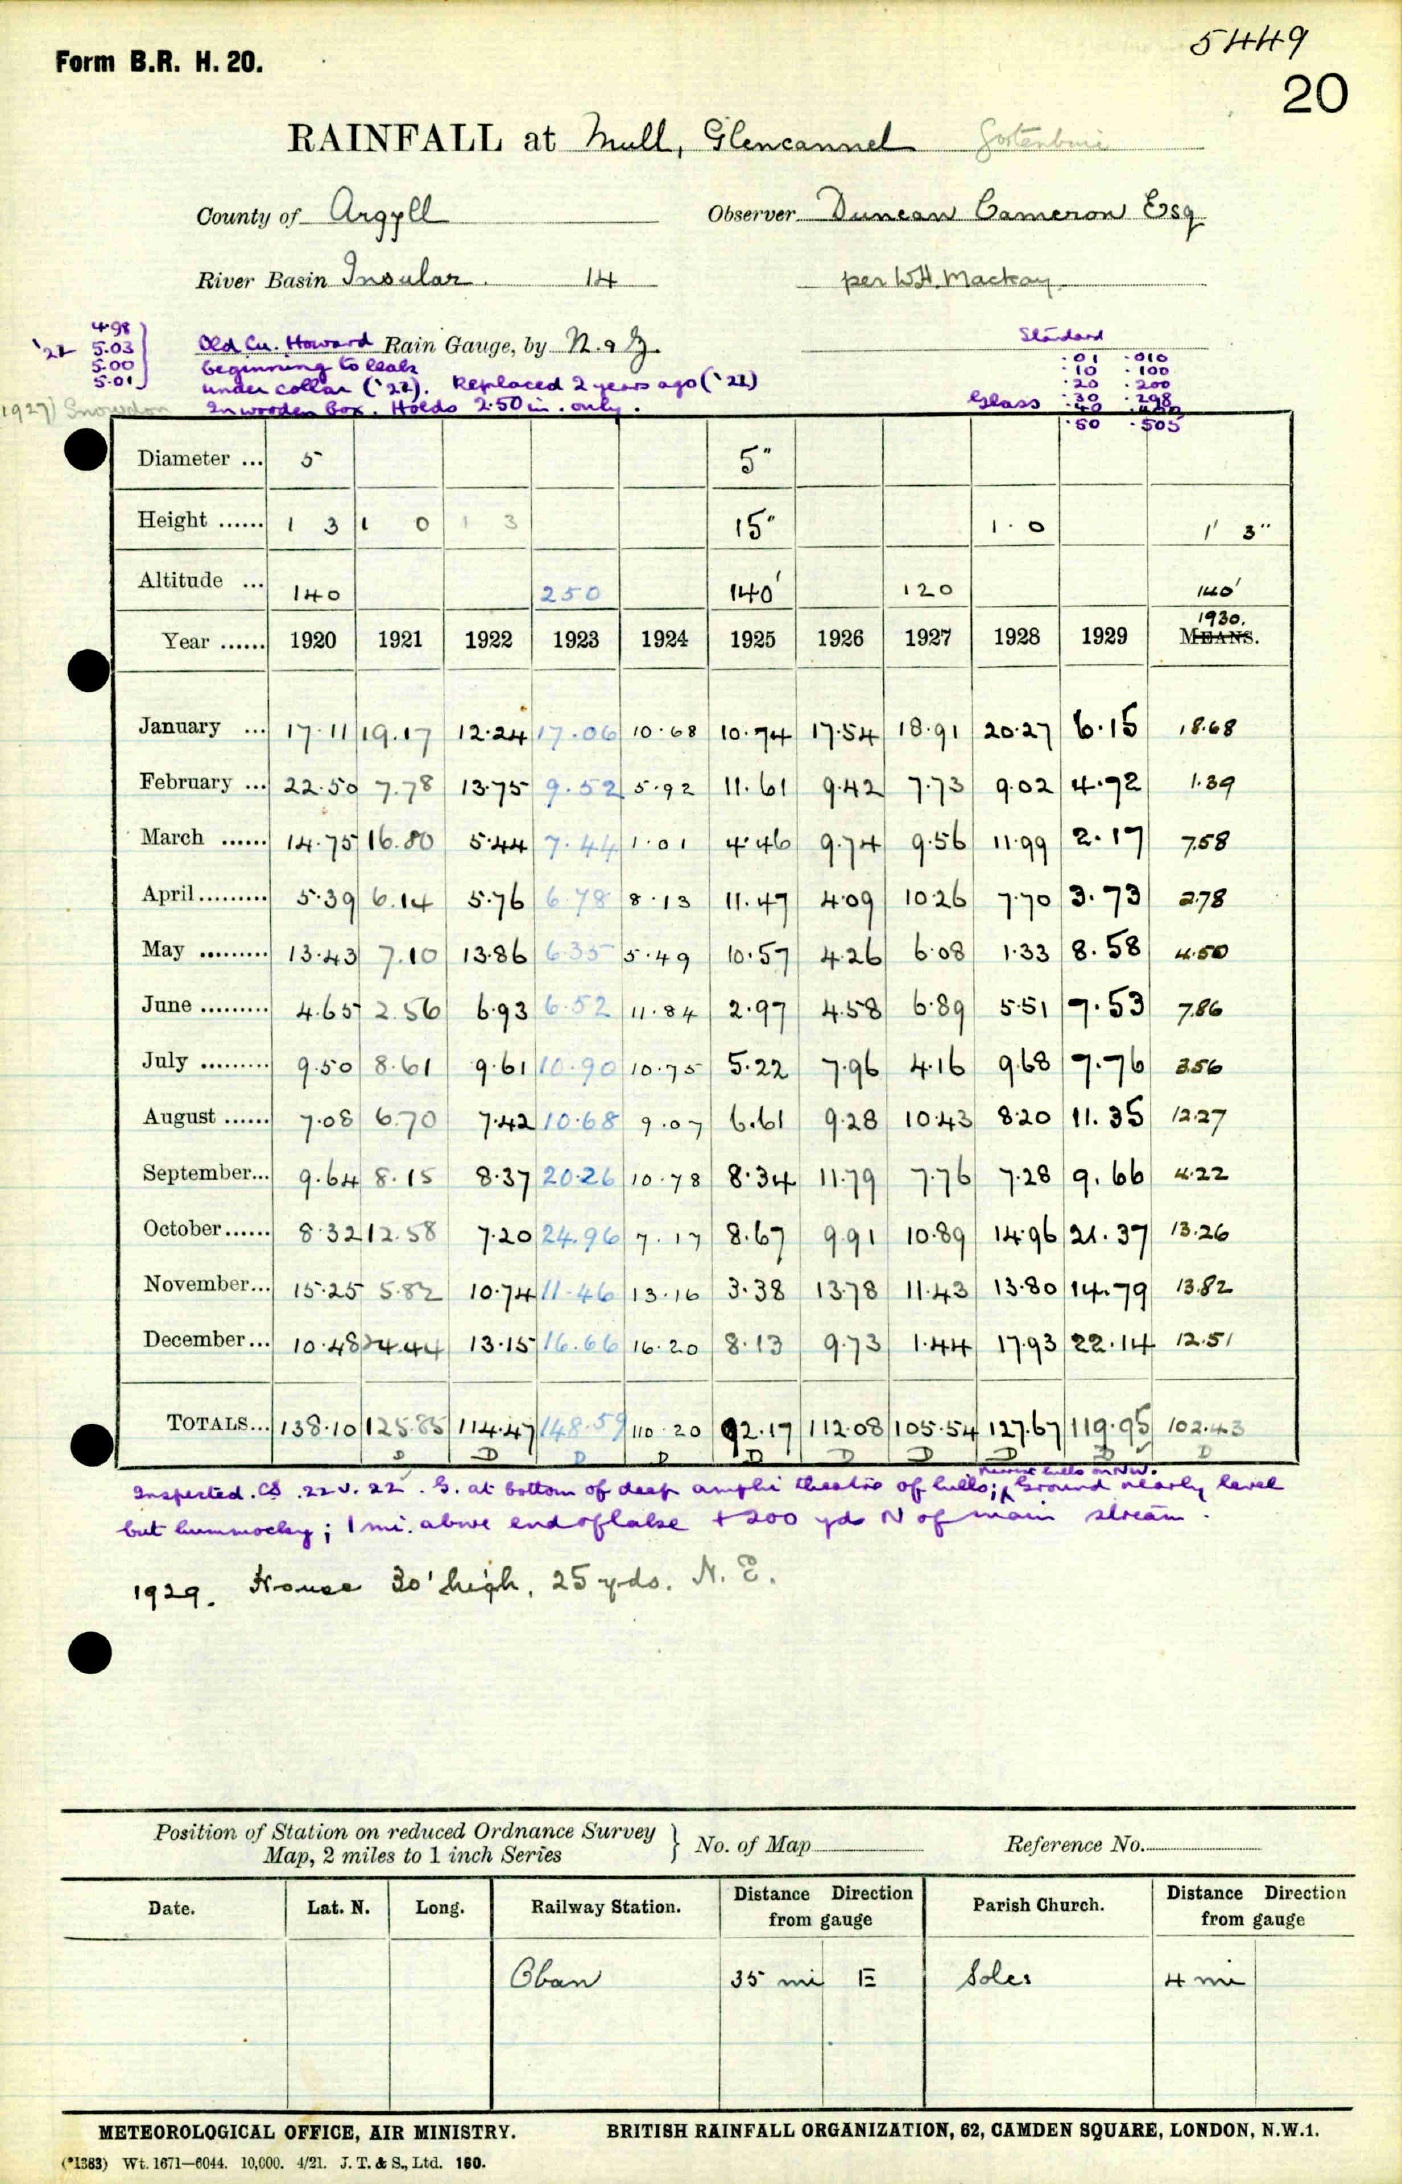 5449
Form B.R. H. 20.
20
RAINFALL at Mull, Glencannel
County of Argyll Observer Duncan Cameron Esq
River Basin Insular. 14 per W.H. Mackay
'22 4.98 5.03 5.00 5.01
Old Cu. Howard Rain Gauge, by N. & Z.
beginning to leak
under collar ('22). Replaced 2 years ago ('22)
1927) Snowdon In wooden box. Holds 2.50 in. only.
Standard
.01 .010
.10 .100
.20 .200
Glass .30 .298
.40
.50 .505
Diameter ... 5 5"
Height ...... 1 3 1 0 1 3 15" 1.0 1' 3"
Altitude ... 140 250 140' 120 140'
1930.
Year ...... 1920 1921 1922 1923 1924 1925 1926 1927 1928 1929 MEANS.
January ... 17.11 19.17 12.24 17.06 10.68 10.74 17.54 18.91 20.27 6.15 18.68
February ... 22.50 7.78 13.75 9.52 5.92 11.61 9.42 7.73 9.02 4.72 1.39
March ...... 14.75 16.80 5.44 7.44 1.01 4.46 9.74 9.56 11.99 2.17 7.58
April ......... 5.39 6.14 5.76 6.78 8.13 11.47 4.09 10.26 7.70 3.73 2.78
May ......... 13.43 7.10 13.86 6.35 5.49 10.57 4.26 6.08 1.33 8.58 4.50
June ......... 4.65 2.56 6.93 6.52 11.84 2.97 4.58 6.89 5.51 7.53 7.86
July ......... 9.50 8.61 9.61 10.90 10.75 5.22 7.96 4.16 9.68 7.76 3.56
August ...... 7.08 6.70 7.42 10.68 9.07 6.61 9.28 10.43 8.20 11.35 12.27
September... 9.64 8.15 8.37 20.26 10.78 8.34 11.79 7.76 7.28 9.66 4.22
October ...... 8.32 12.58 7.20 24.96 7.17 8.67 9.91 10.89 14.96 21.37 13.26
November... 15.25 5.82 10.74 11.46 13.16 3.38 13.78 11.43 13.80 14.79 13.82
December ... 10.48 24.44 13.15 16.66 16.20 8.13 9.73 1.44 17.93 22.14 12.51
TOTALS... 138.10 125.85 114.47 148.59 110.20 92.17 112.08 105.54 127.67 119.95 102.43
D D D D D D D D D D
Inspected. CS .22.V.22. G. at bottom of deep amphi theatre of hills; Ground nearly level
but hummocky; 1 mi. above end of lake + 200 yds N of main stream.
1929. House 30' high, 25 yds. N. E.
Position of Station on reduced Ordnance Survey
Map, 2 miles to 1 inch Series } No. of Map Reference No.
Date. Lat. N. Long. Railway Station. Distance Direction from gauge Parish Church. Distance Direction from gauge
Oban 35 mi E Soles 4 mi
METEOROLOGICAL OFFICE, AIR MINISTRY. BRITISH RAINFALL ORGANIZATION, 62, CAMDEN SQUARE, LONDON, N.W.1.
(*1383) Wt. 1671—6044. 10,000. 4/21. J. T. & S., Ltd. 160.